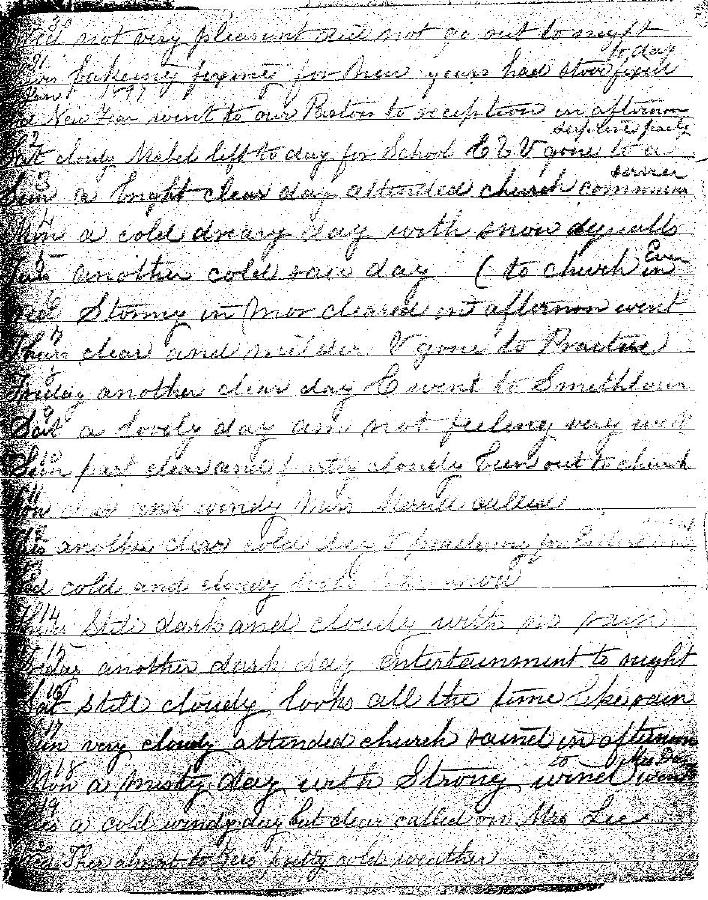 30
Wed not very pleasant did not go out to night
31 to day
baking for New years had stove fixed
1897
New Year went to our Pastors to reception in afternoon
2 surprise party
Sat cloudy Mabel left to day for School E & V gone to a
3 service
Sun a bright clear day attended church communion
4
Mon a cold dreary day with snow squalls
5 Even
Tues another cold raw day ( to church in
6
Wed Stormy in Mor cleared in afternoon went
7
Thurs clear and milder V gone to Practice
8
Friday another clear day E went to Smithtown
9
Sat a lovely day am not feeling very well
10
Sun part clear and partly cloudy Even out to church
11
Mon clear and windy Miss Merrill called
12
Tues another clear cold day V practicing for
13
Wed cold and cloudy looks like snow
14
Still dark and cloudy with no rain
15
Friday another dark day entertainment to night
16
Sat still cloudy looks all the time like rain
17
Sun very cloudy attended church rained in afternoon
18 to Mrs
Mon a misty day with Strong wind went
19
Tues a cold windy day but clear called on Mrs Lee
Ther almost to Zero pretty cold weather